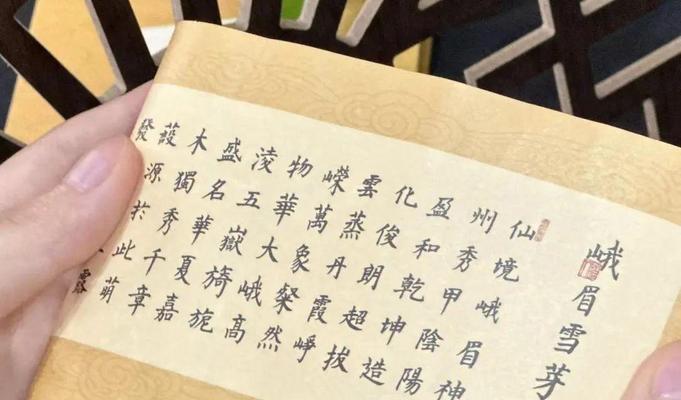 峨眉雪芽
仙境峨眉神
州秀甲陰陽
盈和乾坤造
化俊朗超拔
雲蒸丹霞崢
嶸萬象粲然
物華大峨高
淩五嶽旖旎
盛名華夏嘉
木獨秀千章
葭源於此萌
發
露